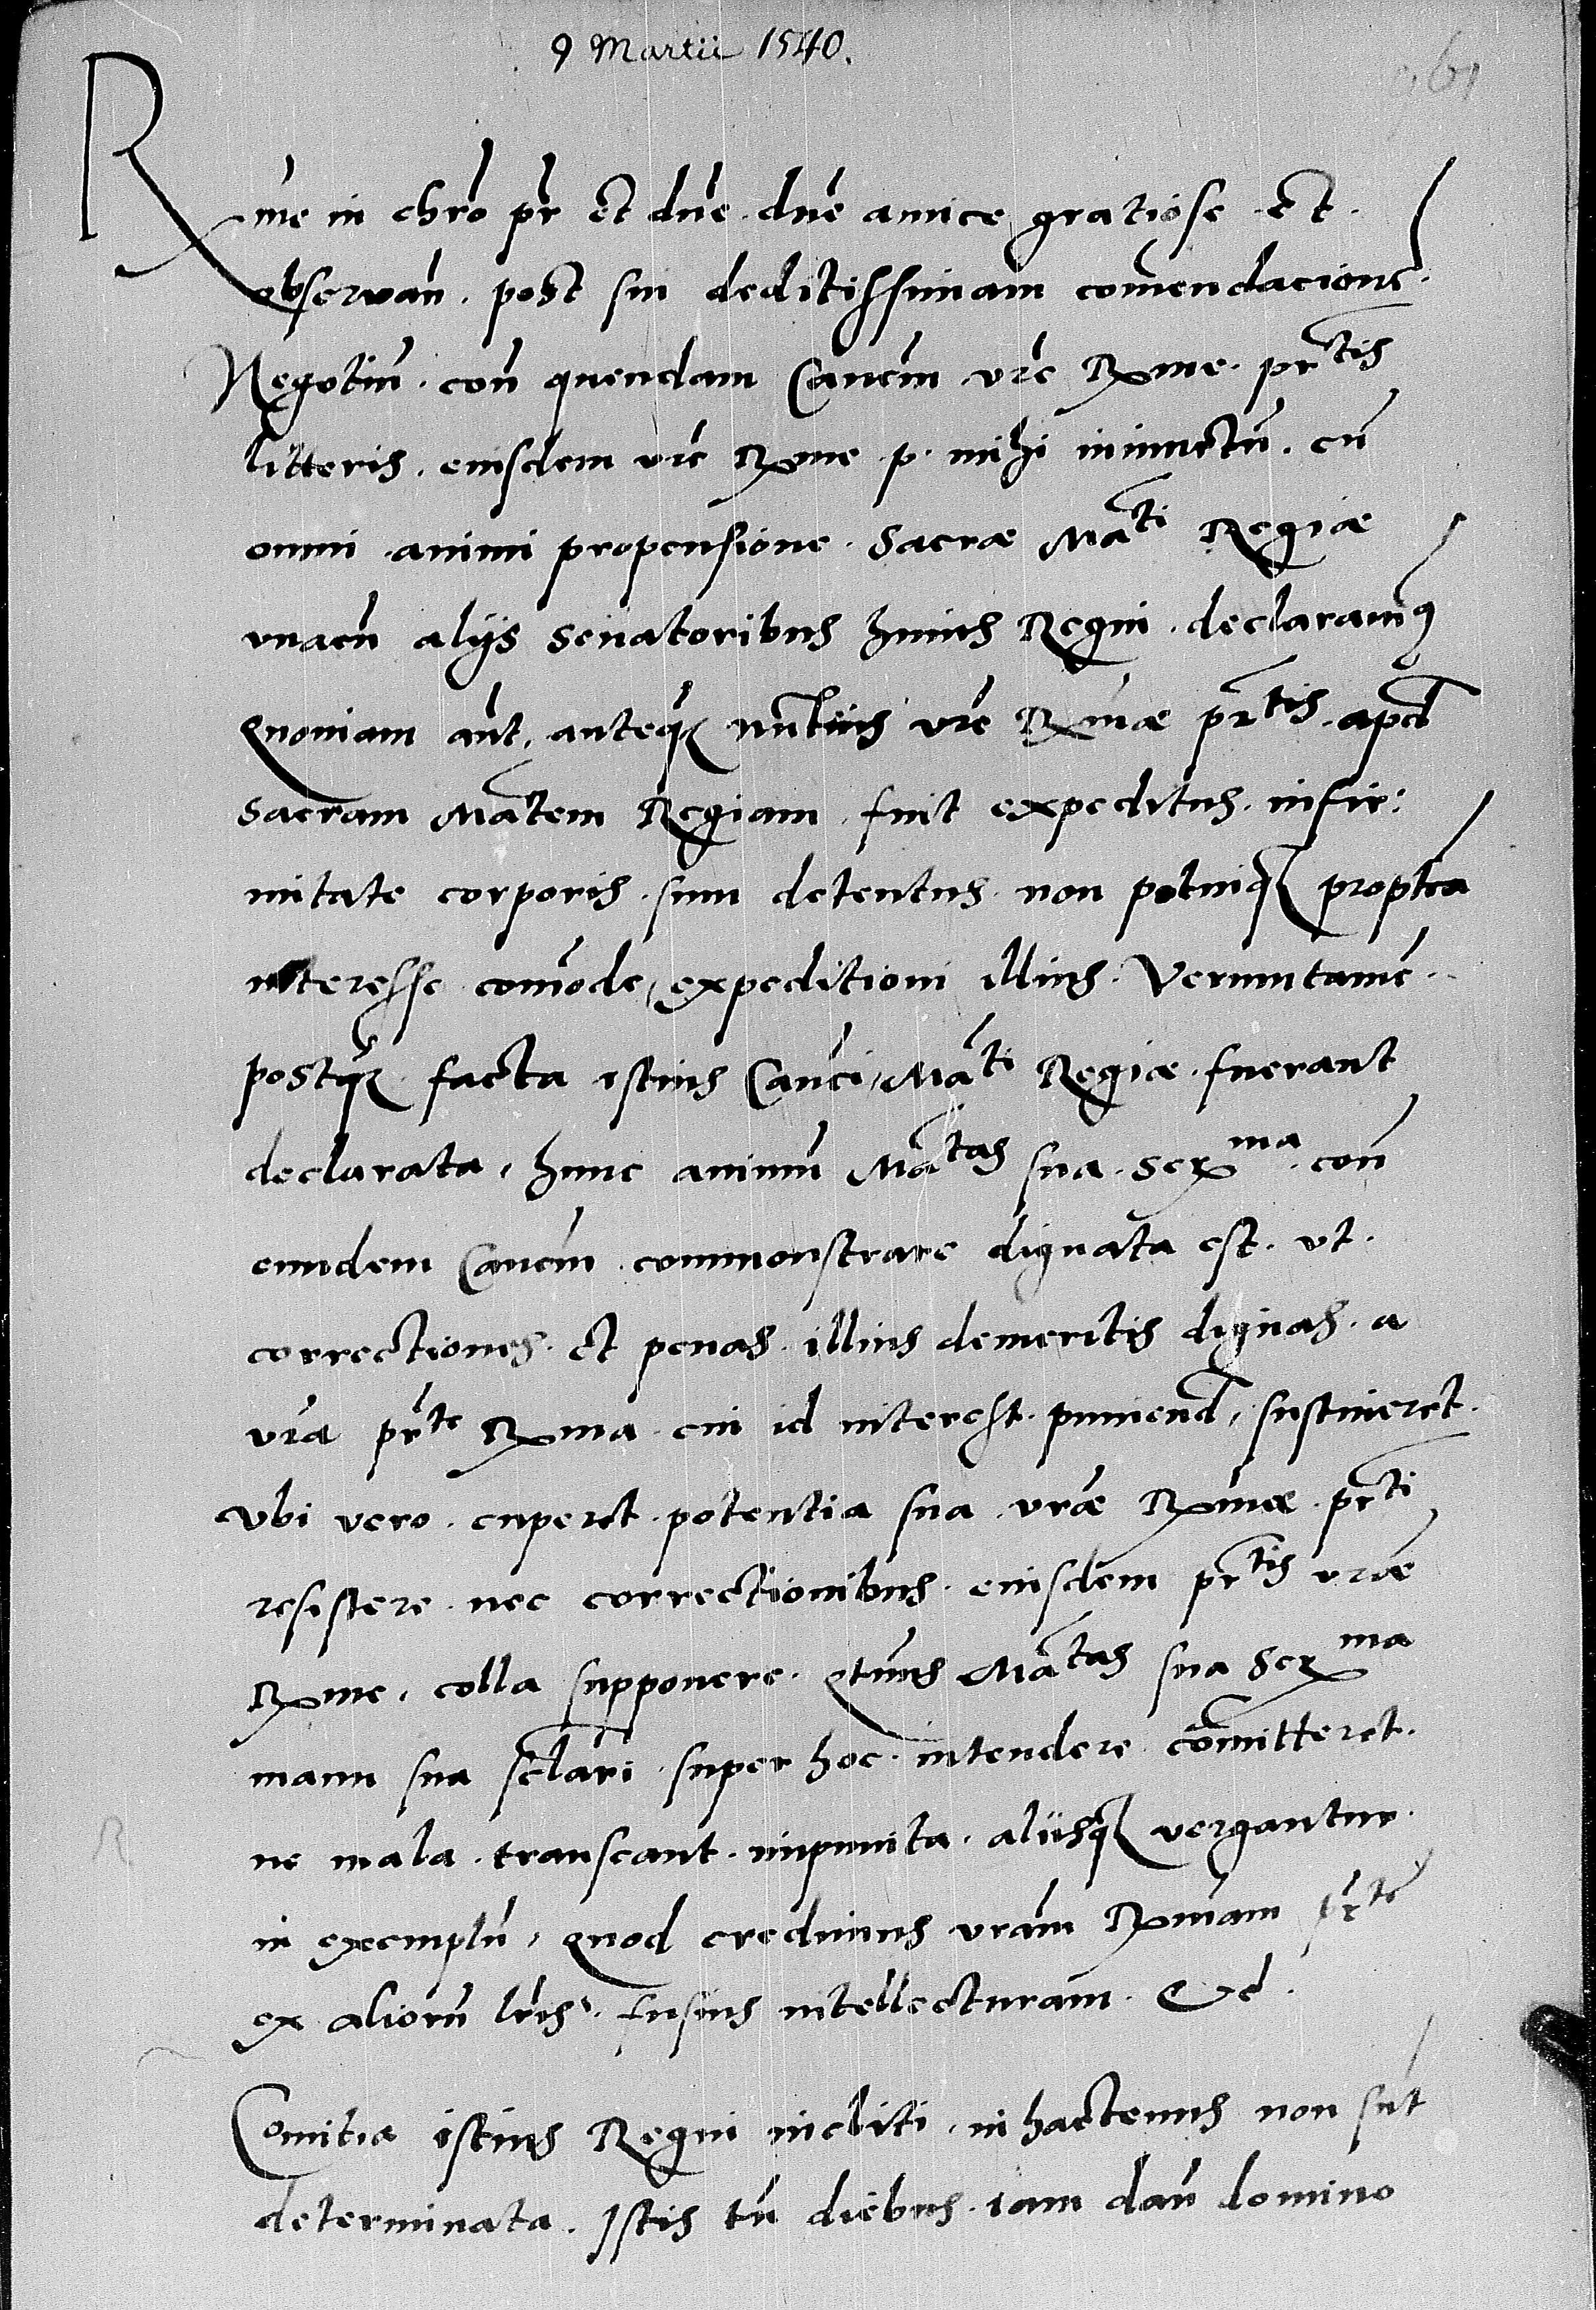 9 Martii 1540.
Rme in chro pr et dne dne amice gratiose et
observan. post sui deditissimam comendacione.
Negotiu con quendam Canem vre Rme prtis
litteris eiusdem vre Rme p. mihi iniunctu. cu
omni animi propensione Sacrae Mati Regiae
vnacu alijs senatoribus huius Regni declaramus
Quoniam aut, anteq nuntius vre Rmae prtis apd
sacram Matem Regiam fuit expeditus. infir:
mitate corporis sum detentus non potuiq proptea
interesse comode, expeditioni illius. Veruntame
postq facta istius Canci, Mati Regiae fuerant
declarata, hunc animu Matas sua Serma con
eundem Canem commonstrare dignata est. vt.
correctiones. et penas illius demeritis dignas. a
vra prte Rma cui id interest puniend, sustineret.
Vbi vero cuperet potentia sua vrae Rmae prti
resistere nec correctionibus eiusdem prtis vrae
Rme, colla supponere. Qtinus Matas sua Serma
manu sua sclari super hoc intendere comitteret.
ne mala transeant impunita aliisq vergantur
in exemplu, quod credimus vram Rmam prte
ex alioru lris fusius intellecturam. Etc.
Comitia istius Regni incliti, in hactenus non sut
determinata. Istis tn diebus iam dan domino